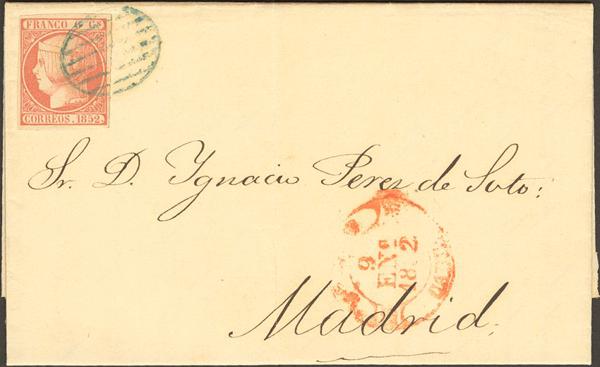 FRANCO 6 Cs
CORREOS. 1852.
Sr. D. Ygnacio Perez de Soto:
9
ENE
1852
Madrid.